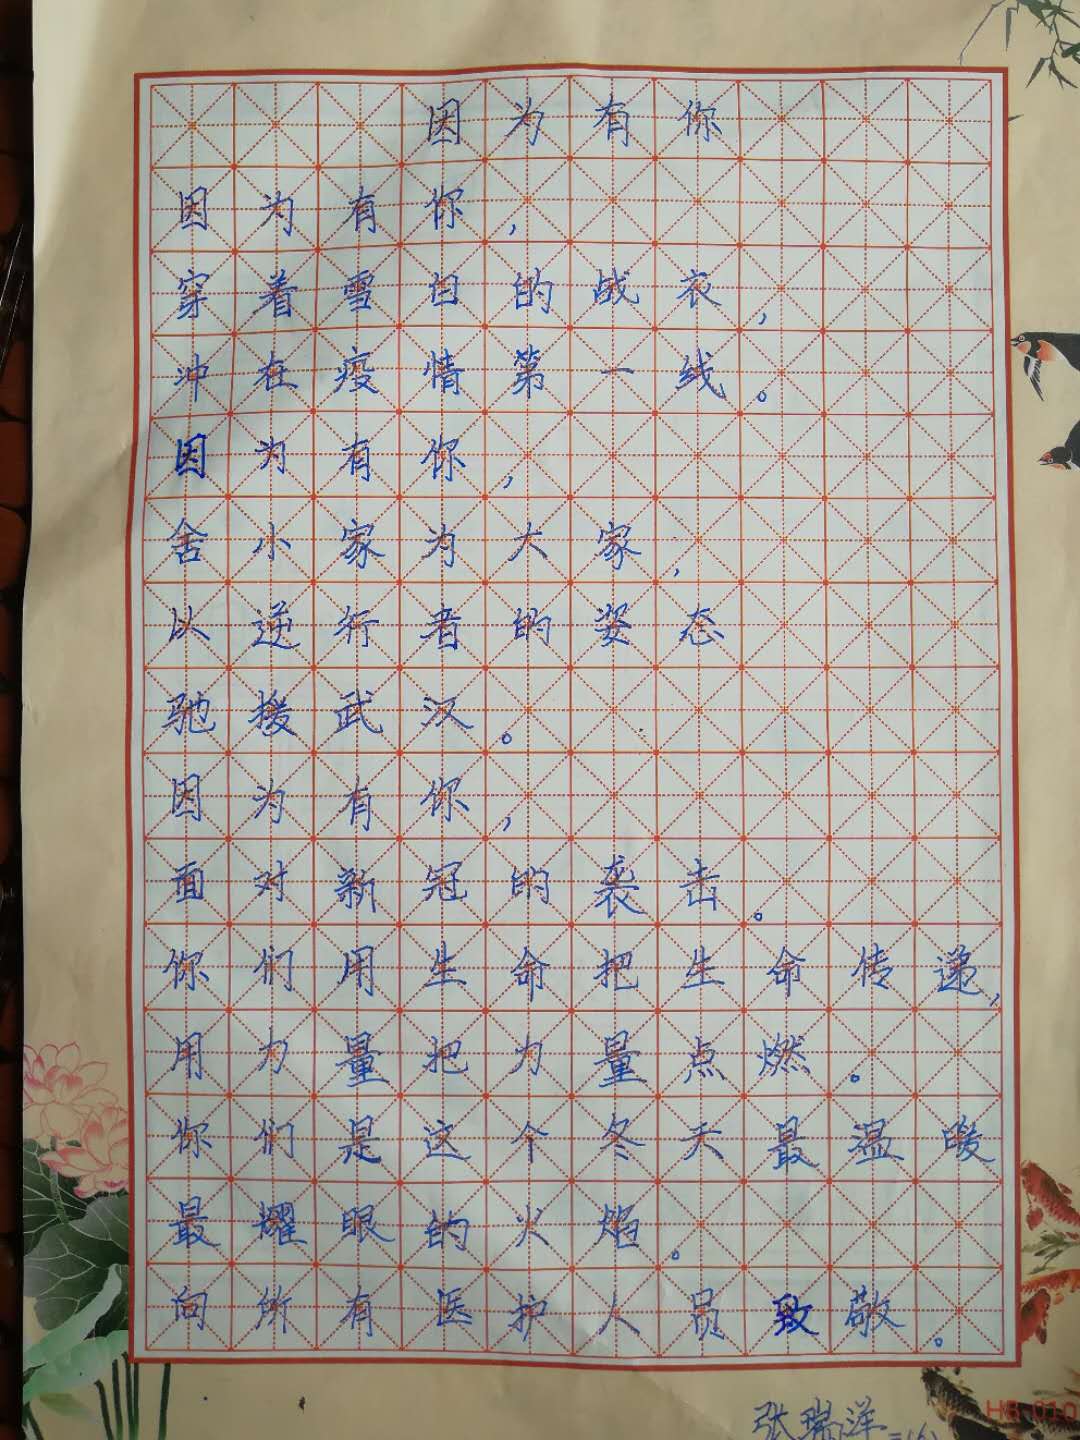 因为有你
因为有你，
穿着雪白的战衣，
冲在疫情第一线。
因为有你，
舍小家为大家，
以逆行者的姿态
驰援武汉。
因为有你，
面对新冠的袭击。
你们用生命把生命传递，
用力量把力量点燃。
你们是这个冬天最温暖
最耀眼的火焰。
向所有医护人员致敬。
张瑞洋 二(6)
HB-010